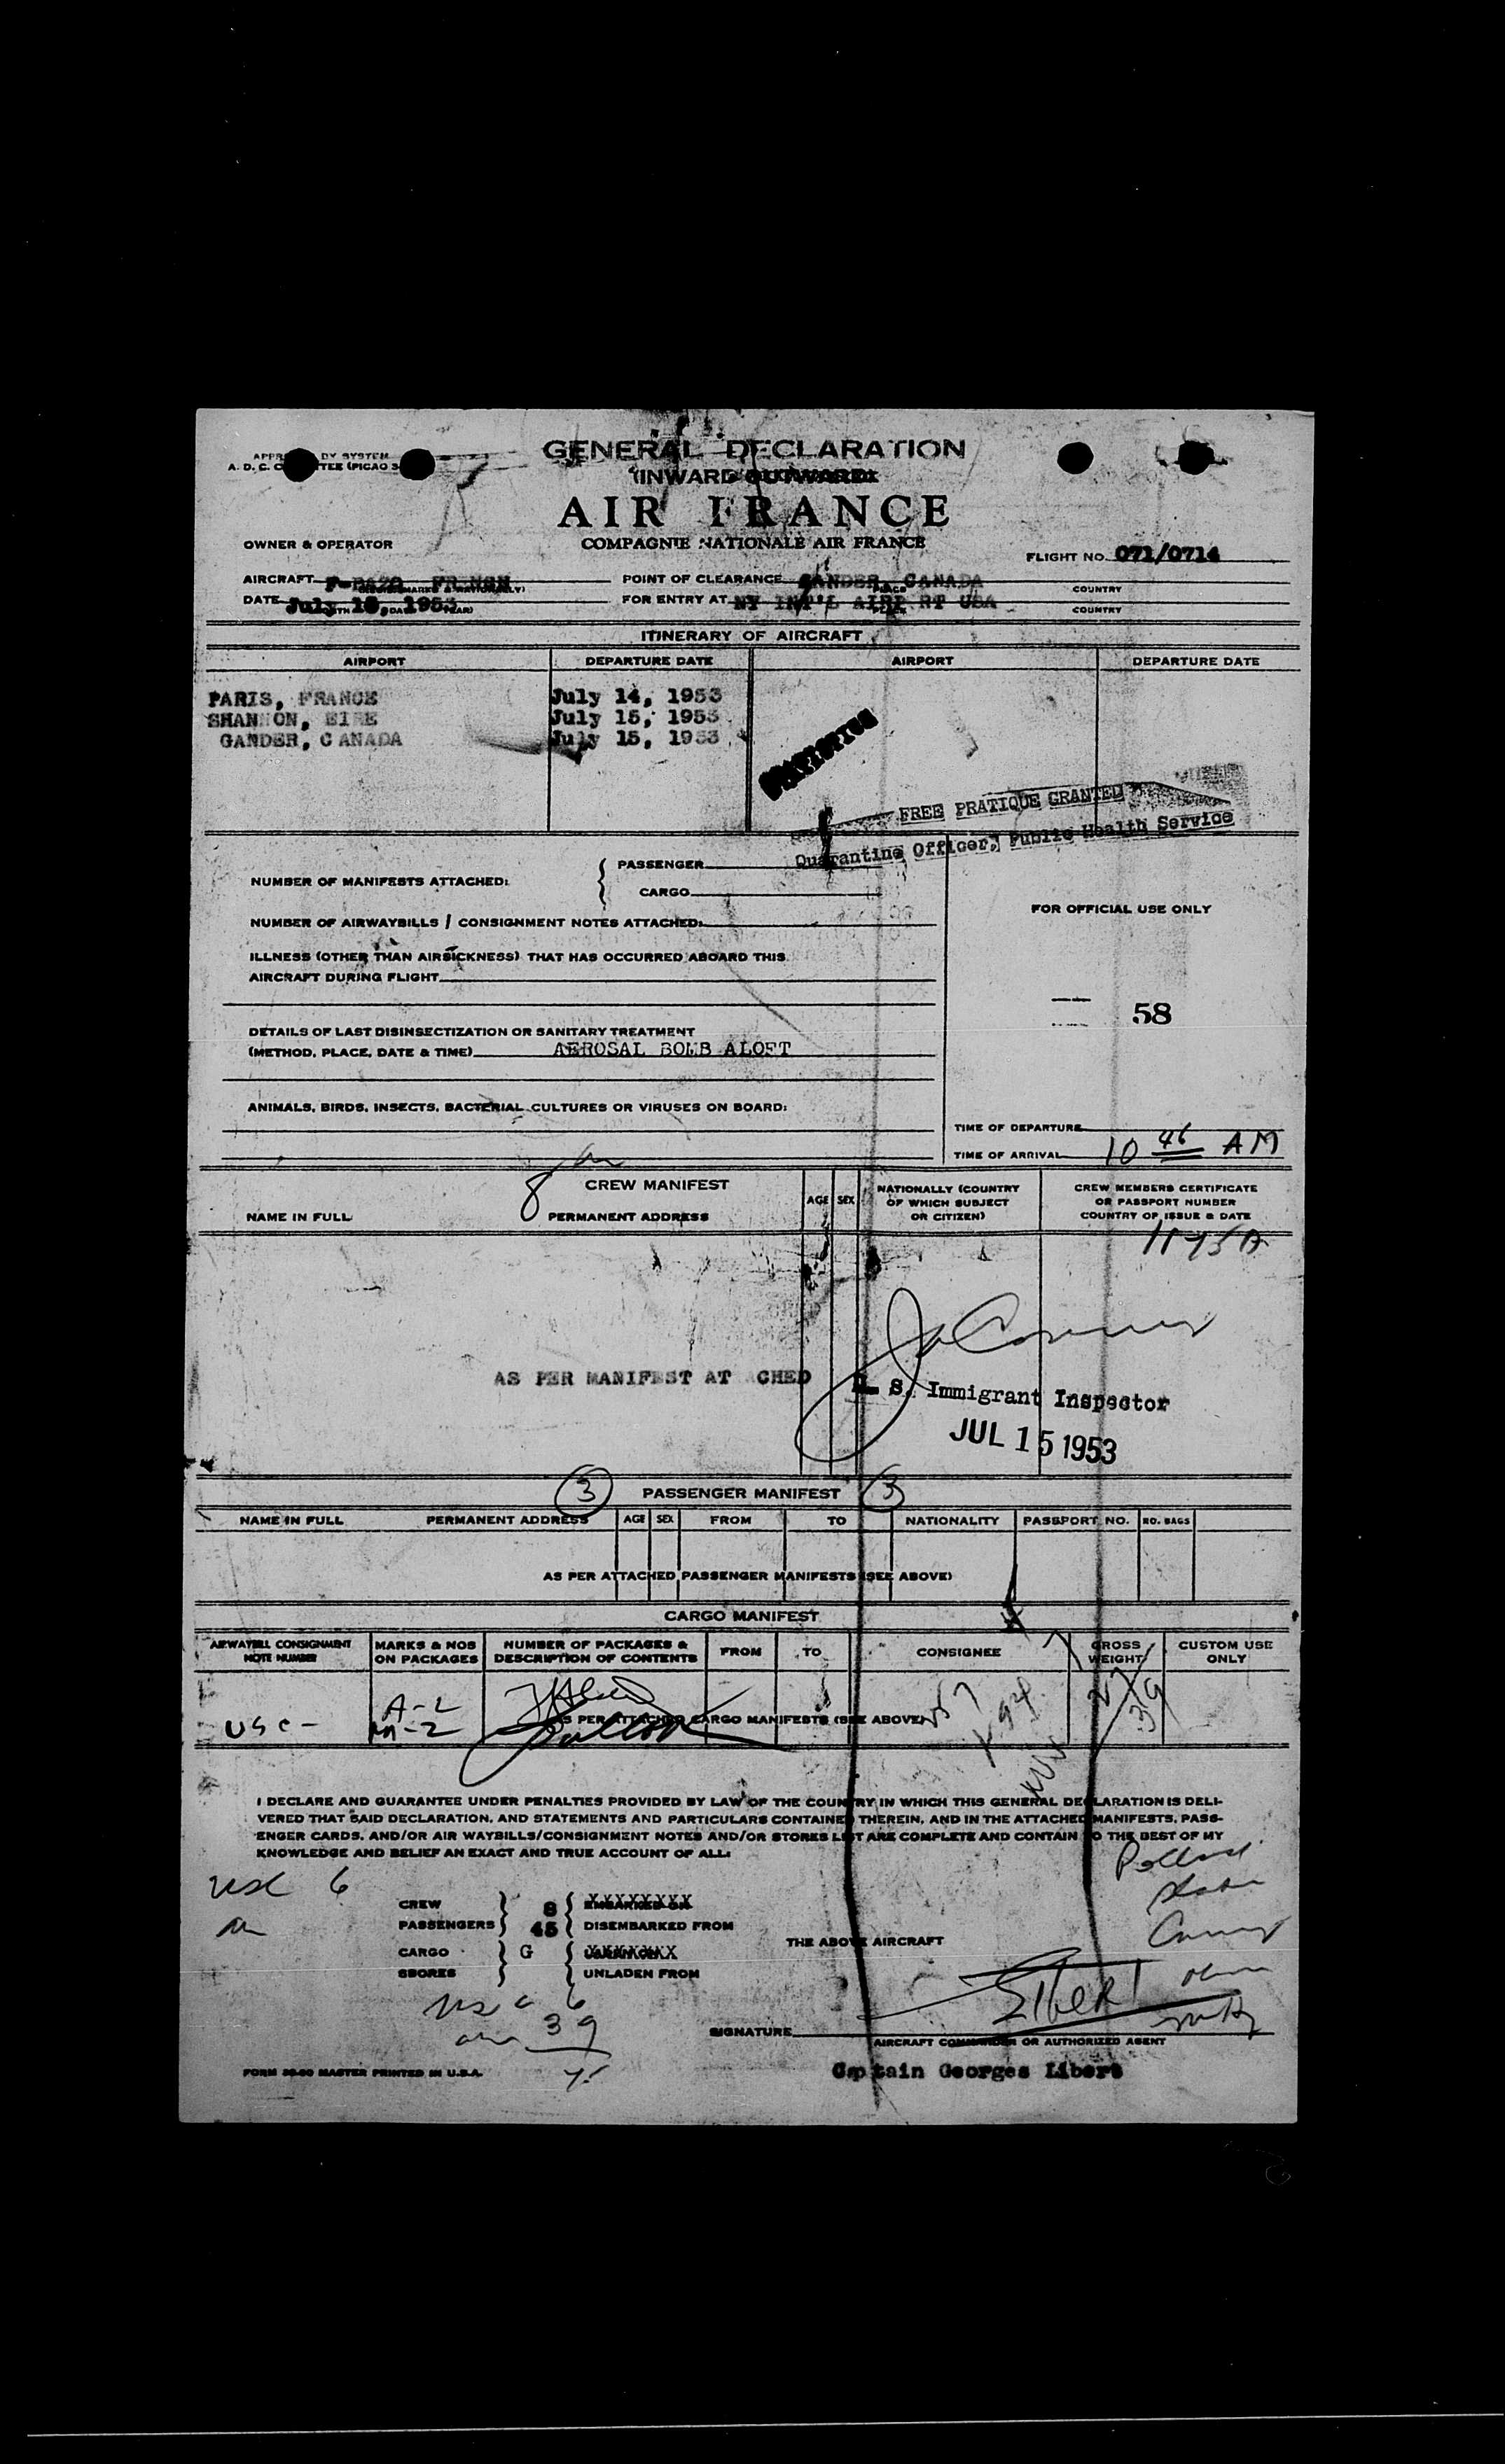 GENERAL DECLARATION
(INWARD OUTWARD)
AIR FRANCE
COMPAGNIE NATIONALE AIR FRANCE
OWNER & OPERATOR
FLIGHT NO. 071/0714
AIRCRAFT
POINT OF CLEARANCE GANDER, CANADA
COUNTRY
DATE July
FOR ENTRY AT NY INT'L AIRP RT USA
COUNTRY
ITINERARY OF AIRCRAFT
AIRPORT DEPARTURE DATE AIRPORT DEPARTURE DATE
PARIS, FRANCE July 14, 1953
SHANNON, EIRE July 15, 1953
GANDER, CANADA July 15, 1953
FREE PRATIQUE GRANTED
Quarantine Officer, Public Health Service
NUMBER OF MANIFESTS ATTACHED:
PASSENGER
CARGO
FOR OFFICIAL USE ONLY
NUMBER OF AIRWAYBILLS / CONSIGNMENT NOTES ATTACHED:
ILLNESS (OTHER THAN AIRSICKNESS) THAT HAS OCCURRED ABOARD THIS
AIRCRAFT DURING FLIGHT
58
DETAILS OF LAST DISINSECTIZATION OR SANITARY TREATMENT
(METHOD, PLACE, DATE & TIME) AEROSAL BOMB ALOFT
ANIMALS, BIRDS, INSECTS, BACTERIAL CULTURES OR VIRUSES ON BOARD:
TIME OF DEPARTURE
TIME OF ARRIVAL 10 46 AM
8 CREW MANIFEST
NAME IN FULL PERMANENT ADDRESS AGE SEX
NATIONALLY (COUNTRY
OF WHICH SUBJECT
OR CITIZEN)
CREW MEMBERS CERTIFICATE
OR PASSPORT NUMBER
COUNTRY OF ISSUE & DATE
AS PER MANIFEST AT ACHED
U. S. Immigrant Inspector
JUL 15 1953
3 PASSENGER MANIFEST 3
NAME IN FULL PERMANENT ADDRESS AGE SEX FROM TO NATIONALITY PASSPORT NO. NO. BAGS
AS PER ATTACHED PASSENGER MANIFESTS (SEE ABOVE)
CARGO MANIFEST
AIRWAYBILL CONSIGNMENT
NOTE NUMBER
MARKS & NOS
ON PACKAGES
NUMBER OF PACKAGES &
DESCRIPTION OF CONTENTS
FROM TO CONSIGNEE
GROSS
WEIGHT
CUSTOM USE
ONLY
A-2
USC-
AS PER ATTACHED CARGO MANIFESTS (SEE ABOVE)
I DECLARE AND GUARANTEE UNDER PENALTIES PROVIDED BY LAW OF THE COUNTRY IN WHICH THIS GENERAL DECLARATION IS DELI-
VERED THAT SAID DECLARATION, AND STATEMENTS AND PARTICULARS CONTAINED THEREIN, AND IN THE ATTACHED MANIFESTS, PASS-
ENGER CARDS, AND/OR AIR WAYBILLS/CONSIGNMENT NOTES AND/OR STORES LIST ARE COMPLETE AND CONTAIN TO THE BEST OF MY
KNOWLEDGE AND BELIEF AN EXACT AND TRUE ACCOUNT OF ALL:
USC 6
CREW 8 EMBARKED ON
PASSENGERS 45 DISEMBARKED FROM
THE ABOVE AIRCRAFT
CARGO G
STORES UNLADEN FROM
USC 6
39
SIGNATURE
AIRCRAFT COMMANDER OR AUTHORIZED AGENT
FORM MASTER PRINTED IN U.S.A.
Captain Georges Libert